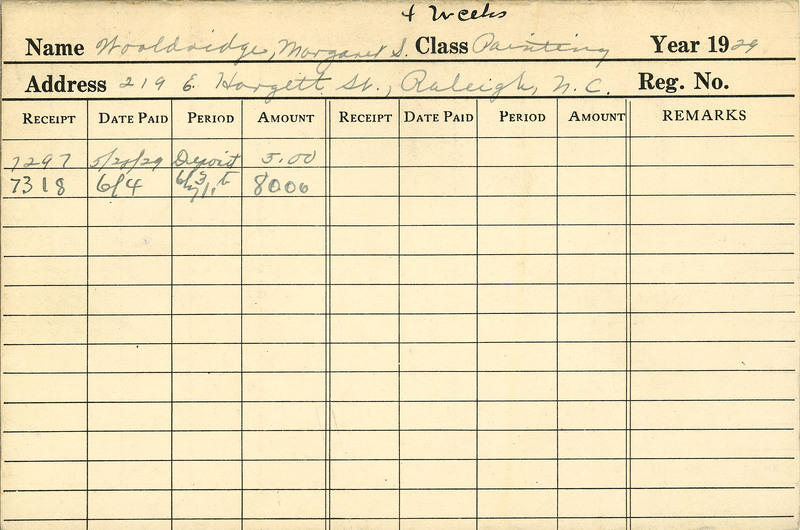 4 Weeks
Name Wooldridge, Margaret S. Class Painting Year 1929
Address 219 E. Hargett St., Raleigh, N.C. Reg. No.
RECEIPT DATE PAID PERIOD AMOUNT RECEIPT DATE PAID PERIOD AMOUNT REMARKS
7297 5/29/29 Deposit 5.00
7318 6/4 6/3 to 7/1 8000